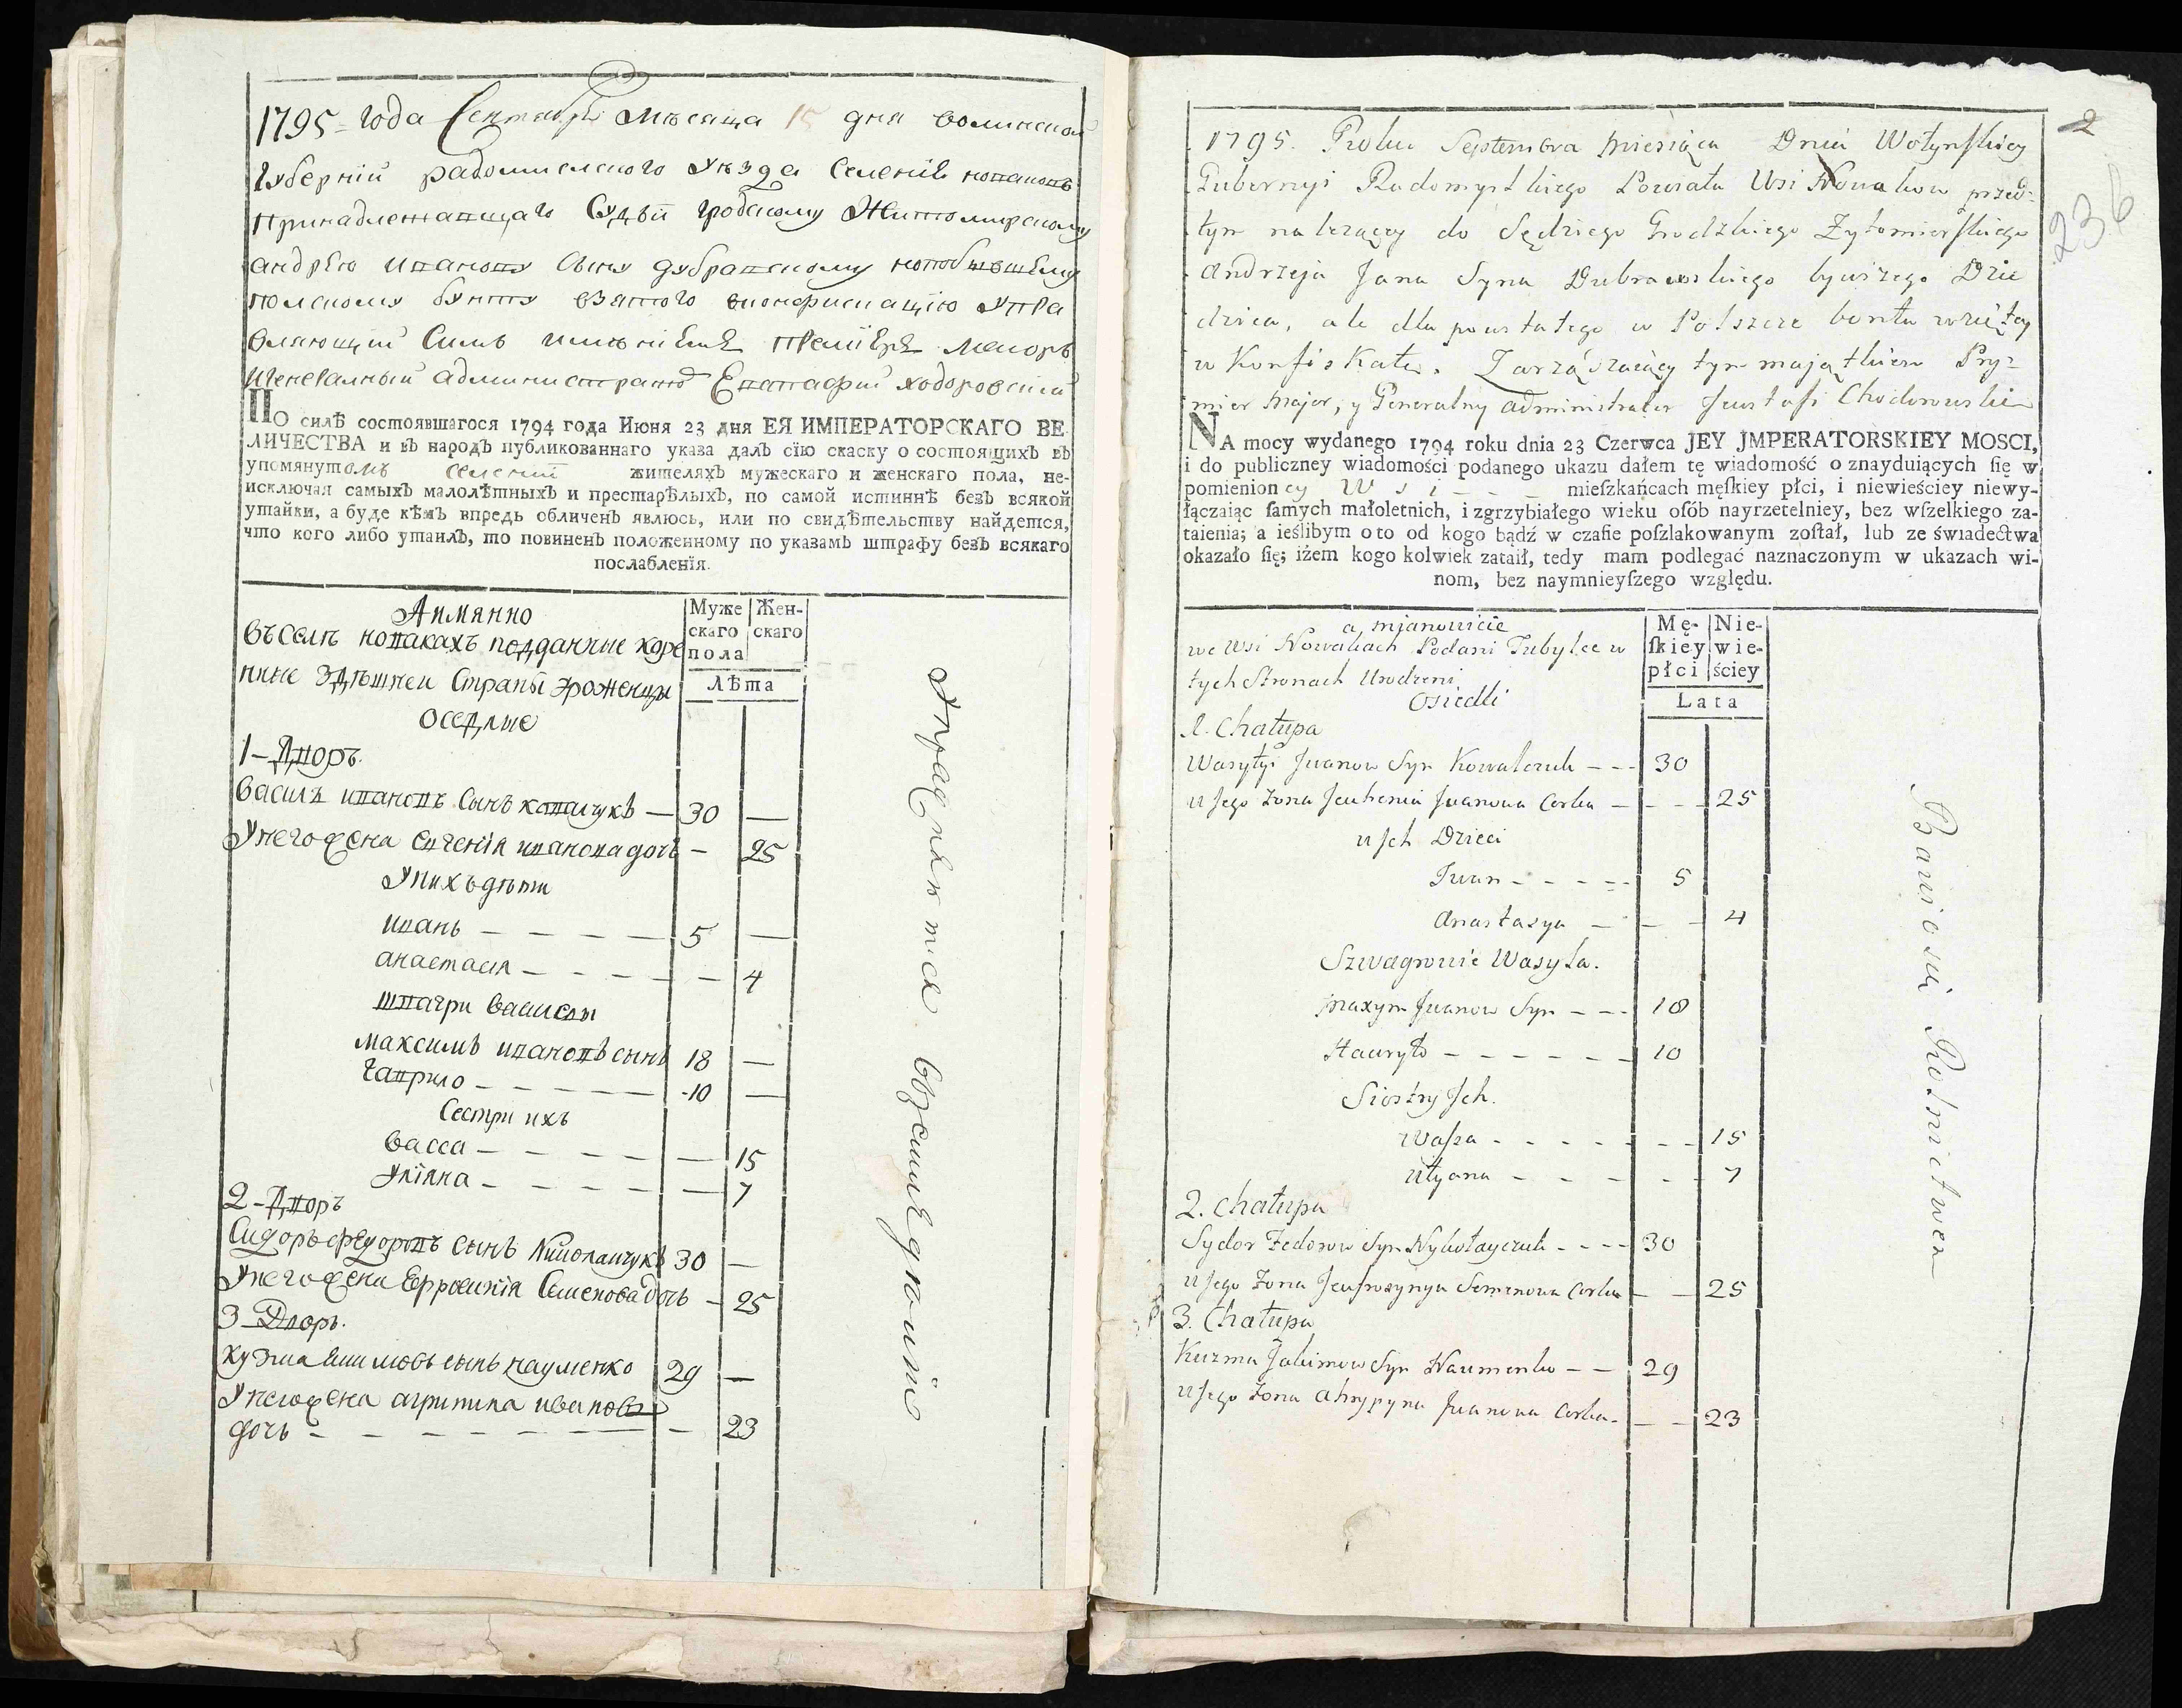 1795= года Сентября Мѣсяца 15 дня волинской
губерніи радомислского Уѣзда Селенія
Принадлежащаго Судьи гродскому Житомирскому
андрею ивановУ сыну дубравскому
полскому бунту взятого вконфискацію Упра
вляющій Симъ имѣніемъ Премієръ маиоръ
Иенералный администраторъ Евстафій ходоровскій
ПО силѣ состоявшагося 1794 года Июня 23 дня ЕЯ ИМПЕРАТОРСКАГО ВЕ-
ЛИЧЕСТВА и въ народъ публикованнаго указа далъ сїю скаску о состоящихъ въ
упомянутомъ селеніи жителяхъ мужескаго и женскаго пола, не-
исключая самыхъ малолѣтныхъ и престарѣлыхъ, по самой истиннѣ безъ всякой
утайки, а буде кѣмъ впредь обличенъ явлюсь, или по свидѣтельству найдется,
что кого либо утаилъ, то повиненъ положенному по указамъ штрафу безъ всякаго
послабленїя.
Аимянно
въселѣ новакахъ подданние коре
нние здѣшнеи Страны Урожинци
оседлие
Муже
скаго
пола
Жен-
скаго
лѣта
1-Дворъ.
Василъ ивановъ Сынъ ковалчукъ — 30 —
Унегожена Евгенія иванова дочь — 25
Унихъ дѣти
иванъ — — — — 5 —
анастасія — — — — — 4
швагри Василя
максимъ ивановъ сынъ 18 —
гаврило — — — — — 10 —
Сестри ихъ
Васса — — — — — 15
Уліяна — — — — — 7
2-Дворъ
Сидоръ федоровъ сынъ Николаичукъ 30 —
Унегожена Ефросинія Семенова дочь — 25
3-Дворъ.
кузма якимовъ сынъ науменко 29 —
Унегожена агрипина иванова
дочь — — — — — — — 23
Упражняются въхсилѣдкоптїю
2
236
1795. Roku Septembra miesiąca Dnia Wołynskiey
Gubernyi Radomyslkiego Powiatu Wsi Nowakow przed=
tym nalezącey do Sędziego Grodzkiego Zytomierskiego
Andrzeja Jana Syna Dubrawskiego bywszego Dzie
dzica, ale dla powstałego w Polszcze bontu wzięłey
w Konfiskatę. Zarządzaiący tym mająthiem Pry=
mier Major, y Generalny administrator Jewstafi Chodorowski
NA mocy wydanego 1794 roku dnia 23 Czerwca JEY JMPERATORSKIEY MOSCI,
i do publiczney wiadomości podanego ukazu dałem tę wiadomość o znayduiących ſię w
pomienioney Wsi - - - mieſzkańcach męſkiey płci, i niewieściey niewy-
łączaiąc ſamych małoletnich, i zgrzybiałego wieku oſób nayrzetelniey, bez wſzelkiego za-
taienia; a ieślibym o to od kogo bądź w czaſie poſzlakowanym zoſtał, lub ze świadectwa
okazało ſię; iżem kogo kolwiek zataił, tedy mam podlegać naznaczonym w ukazach wi-
nom, bez naymnieyſzego względu.
a, mianowicie
we Wsi Nowakach Podani Tubylce w
tych Stronach Urodzeni
Osiedli
Mę-
ſkiey
płci
Nie-
wie-
ściey
Lata
1. Chałupa
Wasylyi Jwanow Syn Kowalczuk - - - 30
u Jego Zona Jeuhenia Jwanowa Corka - - - 25
u Jch Dzieci
Jwan - - - - - 5
Anastasya - - - 4
Szwagrowie Wasyla.
Maxym Jwanow Syn - - - 18
Hawryło - - - - - - 10
Siostry Jch.
Wassa - - - - - - - 15
Ulyana - - - - - - 7
2. Chałupa
Sydor Fedorow Syn Nykołayczuk - - - - 30
u Jego Zona Jeufrozynya Semenowa Corka - - 25
3. Chałupa
Kuzma Jakimow Syn Naumenko - - 29
u Jego Zona Ahrypyna Jwanowa Corka - - - 23
Bawio sie Rolnictwem